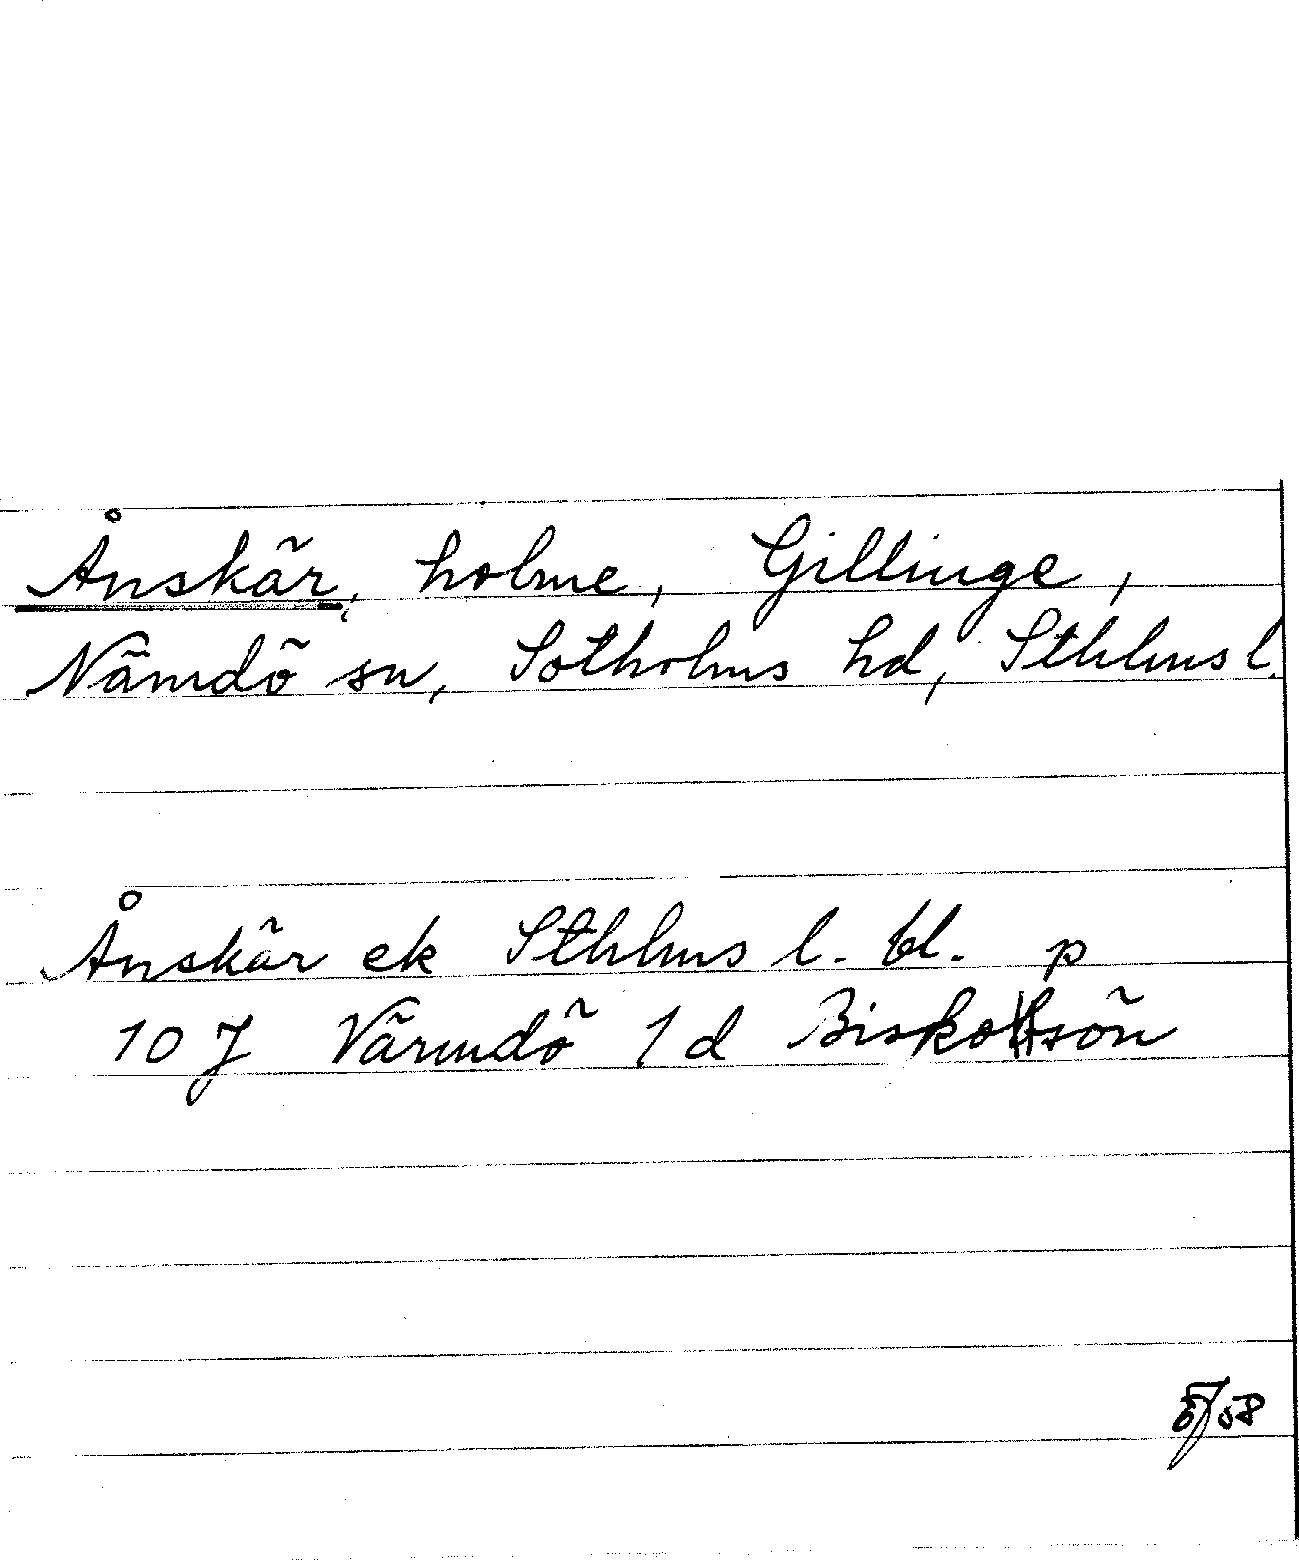 Ånskär, holme, Gillinge,
Nämdö sn, Sotholms hd, Sthlms l.
Ånskär ek Sthlms l. bl. p
10 J Värmdö 1 d
58